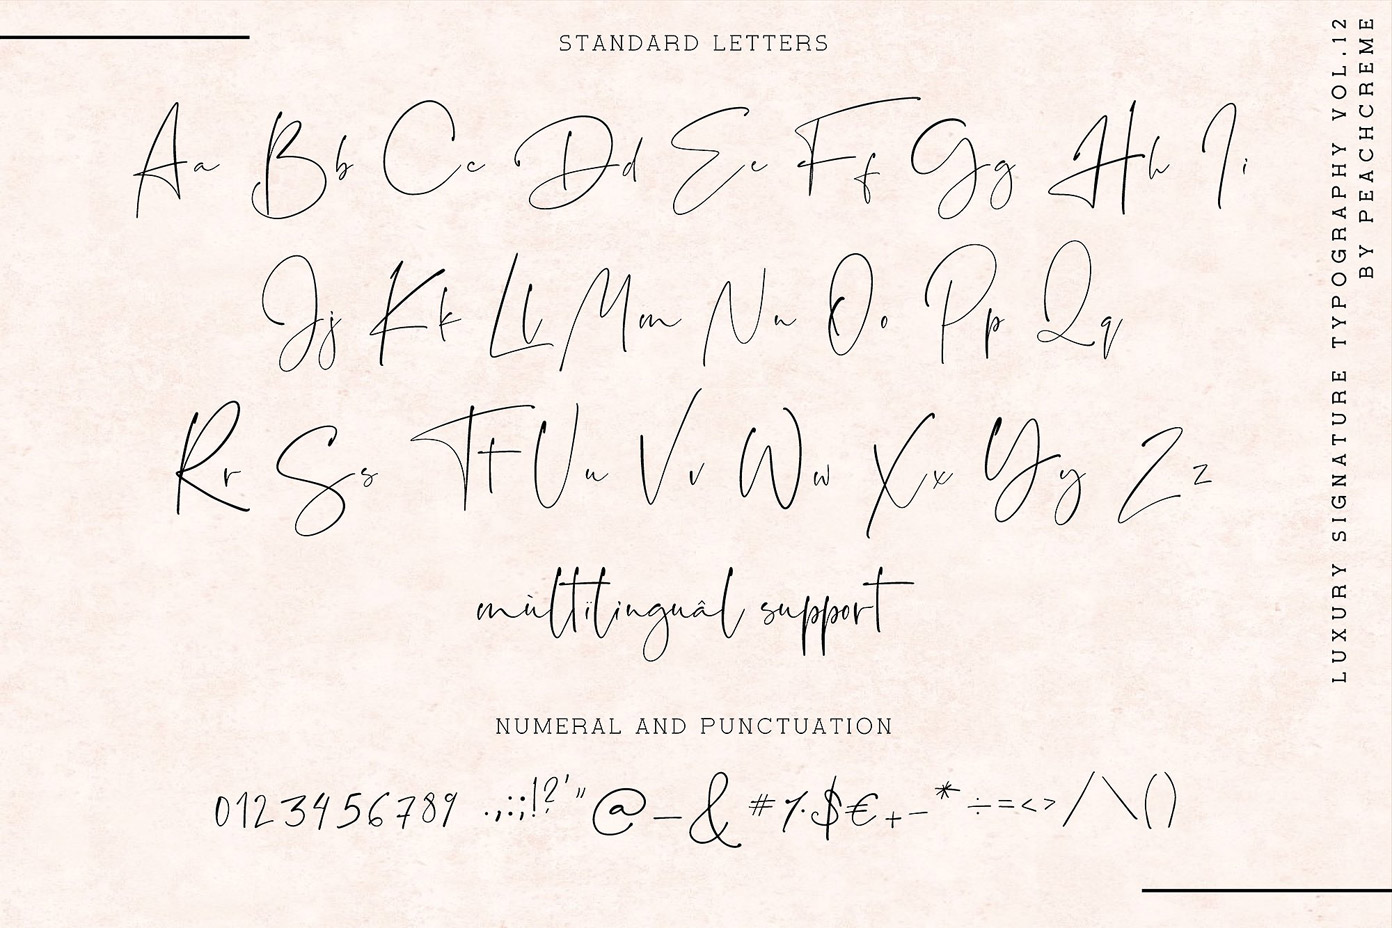 STANDARD LETTERS
Aa Bb Cc Dd Ee Ff Gg Hh Ii
Jj Kk Ll Mm Nn Oo Pp Qq
Rr Ss Tt Uu Vv Ww Xx Yy Zz
mùltïlinguâl support
NUMERAL AND PUNCTUATION
0123456789 .,;:!?'"@_&#%$€+-*÷=<>/\()
LUXURY SIGNATURE TYPOGRAPHY VOL.12
BY PEACHCREME